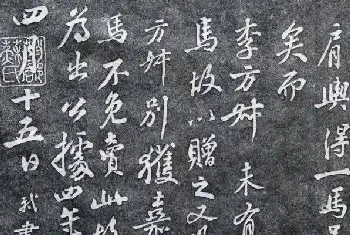 肩輿得一馬
矣而
李方叔未有
馬故以贈之又
方叔別獲嘉
馬不免賣此故
為出公據四年
四月十五日軾書